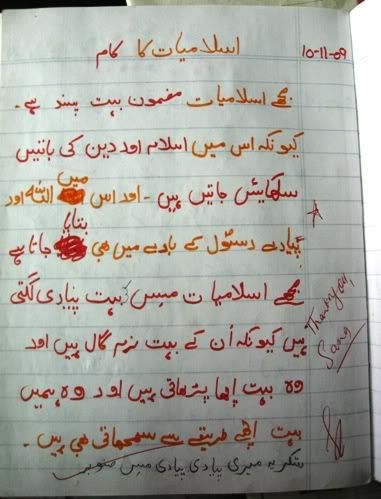 اسلامیات کا کام
10-11-09
مجھے اسلامیات مضمون بہت پسند ہے۔
کیونکہ اس میں اسلام اور دین کی باتیں
سکھائیں جاتیں ہیں۔ اور اس میں اللہ اور
پیارے رسول کے بارے میں بھی بتایا جاتا ہے
مجھے اسلامیات مِس بہت پیاری لگتی
ہیں کیونکہ اُن کے بہت نرم گال ہیں اور
وہ بہت اچھا پڑھاتی ہیں اور وہ ہمیں
بہت اچھے طریقے سے سمجھاتی بھی ہیں۔
شکریہ میری پیاری پیاری مِس صنوبر
Thankyou,